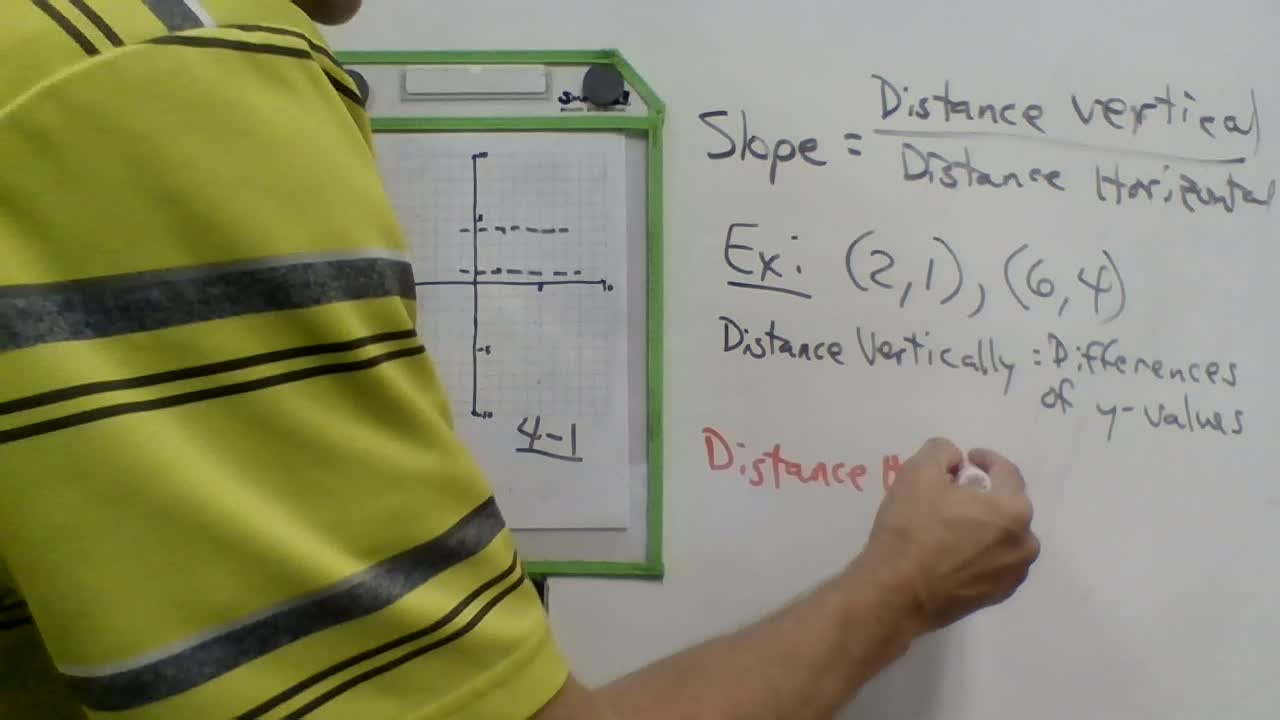 Slope = Distance vertical
Distance Horizontal
Ex: (2,1), (6,4)
Distance Vertically = Differences
of y-values
Distance H
5
5
10
-5
-10
4-1